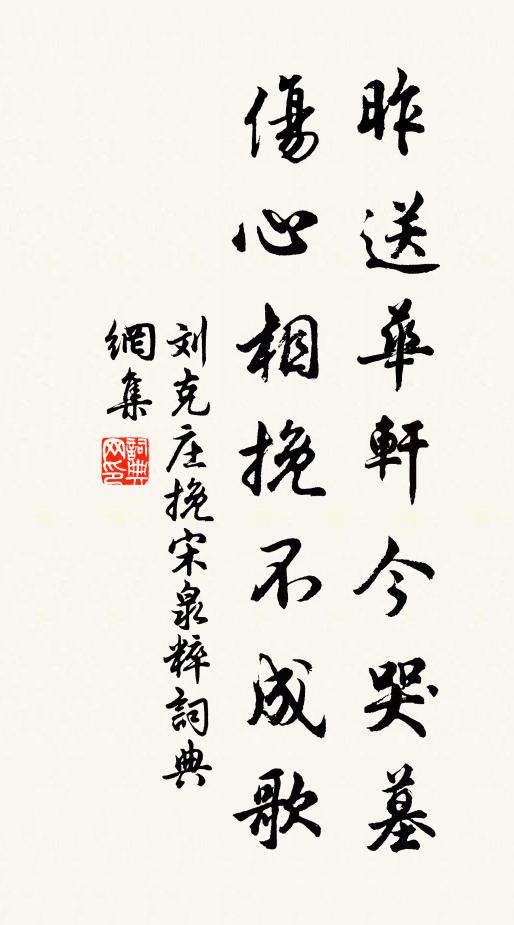 昨送華軒今哭墓
傷心相挽不成歌
刘克庄挽宋泉粹詞典
網集
詞典网印